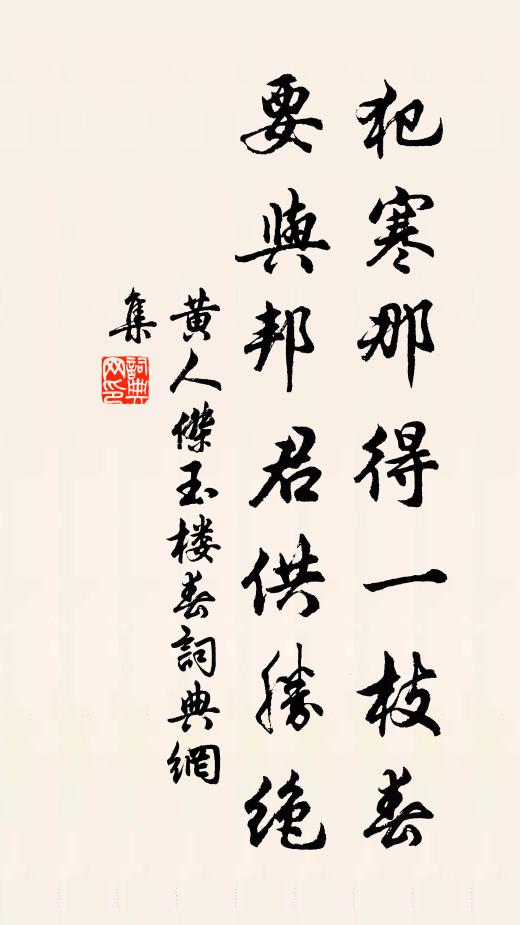 犯寒那得一枝春
要與邦君供勝絶
黄人傑玉楼春詞典網
集
詞典網印